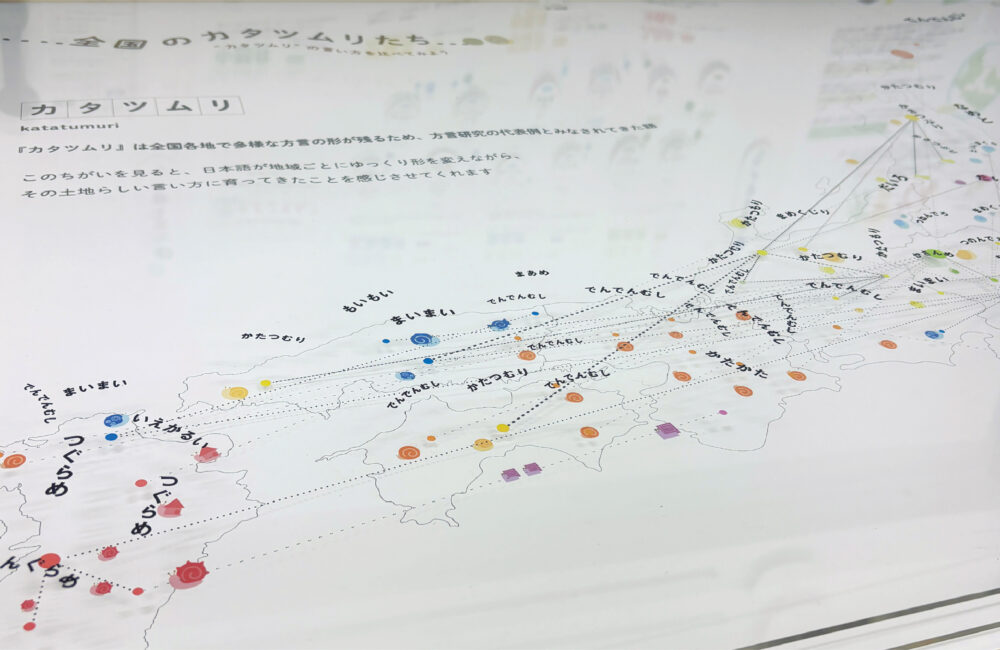 全国のカタツムリたち
"カタツムリ"の言い方を比べてみよう
カタツムリ
katatumuri
『カタツムリ』は全国各地で多様な方言の形が残るため、方言研究の代表例とみなされてきた語
このちがいを見ると、日本語が地域ごとにゆっくり形を変えながら、
その土地らしい言い方に育ってきたことを感じさせてくれます
でんでんむし
かたつむり
だいろ
かたつむり
まめくじり
かたつむり
かたつむり
でんでんむし
でんでんむし
でんでんむし
まいまい
まあめ
もいもい
まいまい
でんでんむし
でんでんむし
でんでんむし
でんでんむし
でんでんむし
かたつむり
でんでんむし
かたつむり
でんでんむし
でんでんむし
かたかた
でんでんむし
まいまい
いえかるい
つぐらめ
つぐらめ
んぐらめ